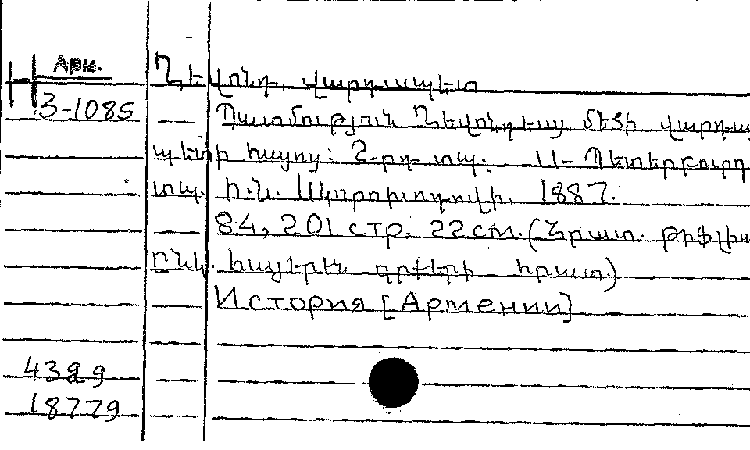 Арм.
Н
3-1085
Ղեւոնդ, վարդապետ
Պատմություն Ղեվոնդեայ մեծի վարդա
պետի հայոց: 2-րդ տպ. Ս-Պետերբուրգ
տպ. Ի.Ն. Սկորոխոդովի, 1887.
84, 201 стр. 22 см. (Հրատ. Թիֆլիս
ընկ. հայերեն գրքերի հրատ.)
История [Армении]
4329
18779